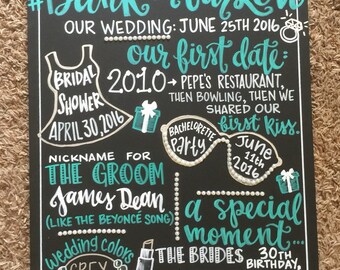 OUR WEDDING: JUNE 25TH 2016
our first date:
2010 → PEPE'S RESTAURANT,
THEN BOWLING, THEN WE
SHARED OUR
first kiss.
BRIDAL
SHOWER
APRIL 30, 2016
BACHELORETTE
Party
JUNE
11th
2016
NICKNAME FOR
THE GROOM
James Dean
(LIKE THE BEYONCÉ SONG)
a special
moment...
wedding colors
GREY
THE BRIDES
30TH
BIRTHDAY,